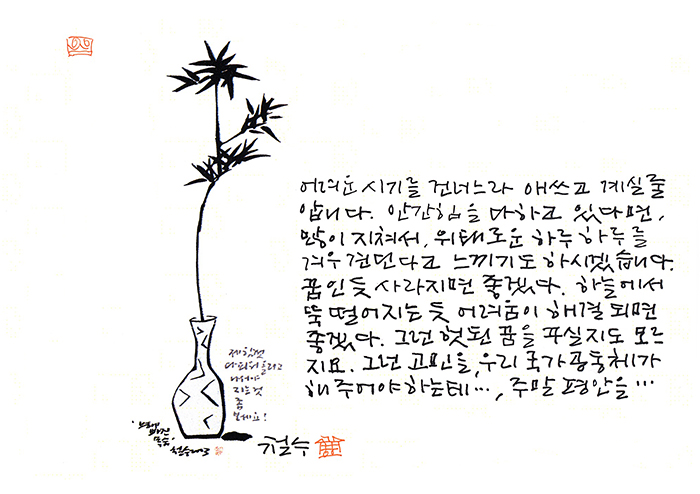 어려운 시기를 건너느라 애쓰고 계실줄
압니다. 안간힘을 다하고 있다면,
많이 지쳐서, 위태로운 하루 하루를
겨우 견딘다고 느끼기도 하시겠습니다.
꿈인듯 사라지면 좋겠다. 하늘에서
뚝 떨어지는듯 어려움이 해결되면
좋겠다. 그런 헛된 꿈을 꾸실지도 모르
지요. 그런 고민을, 우리 국가공동체가
해주어야하는데···, 주말 평안을···
철수